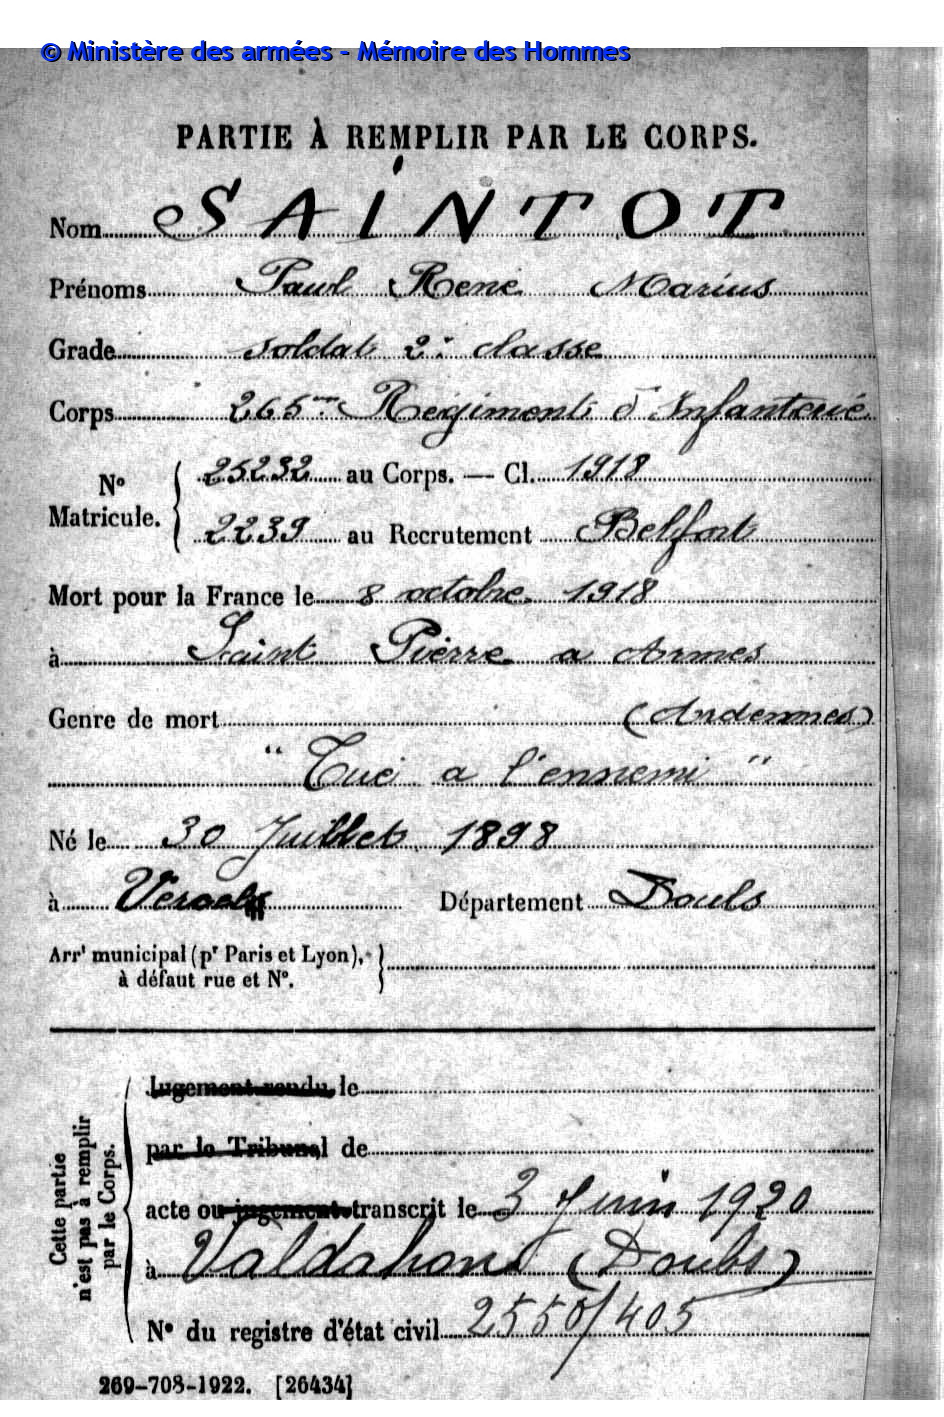 © Ministère des armées - Mémoire des Hommes
PARTIE À REMPLIR PAR LE CORPS.
Nom SAINTOT
Prénoms Paul René Marius
Grade soldat 2e classe
Corps 265me Régiment d'Infanterie
No Matricule. { 25232 au Corps. — Cl. 1918
2239 au Recrutement Belfort
Mort pour la France le 8 octobre 1918
à Saint Pierre a Armes
Genre de mort (Ardennes)
"Tué a l'ennemi"
Né le 30 Juillet 1898
à Vercel Département Doubs
Arrt municipal (pr Paris et Lyon),
à défaut rue et No.
Cette partie n'est pas à remplir par le Corps.
Jugement rendu le
par le Tribunal de
acte ou jugement transcrit le 3 Juin 1920
à Valdahon (Doubs)
No du registre d'état civil 2550/405
269-708-1922. [26434]